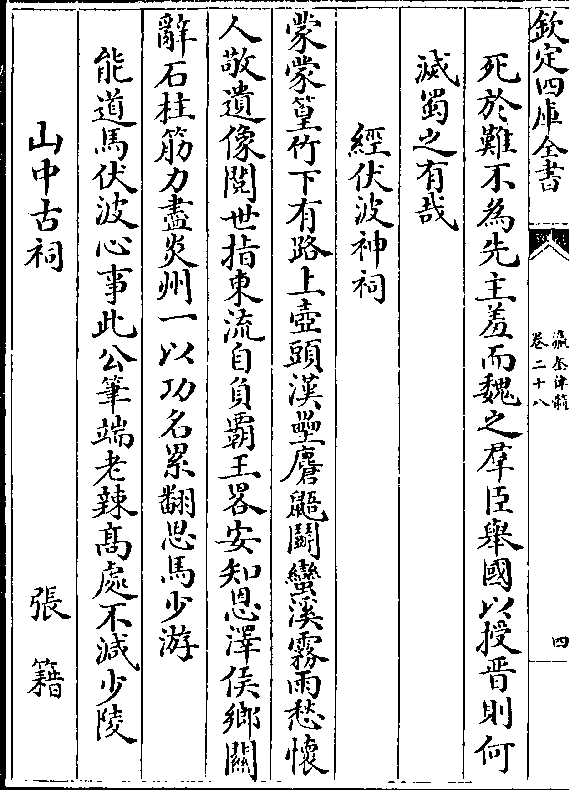 欽定四庫全書
瀛奎律髓
卷二十八
四
死於難不為先主羞而魏之羣臣舉國以授晉則何
滅蜀之有哉
經伏波神祠
蒙蒙篁竹下有路上壺頭漢壘麏鼯鬭蠻溪霧雨愁懷
人敬遺像閱世指東流自負霸王畧安知恩澤侯鄉關
辭石柱筋力盡炎州一以功名累翻思馬少游
能道馬伏波心事此公筆端老辣髙處不減少陵
山中古祠
張籍